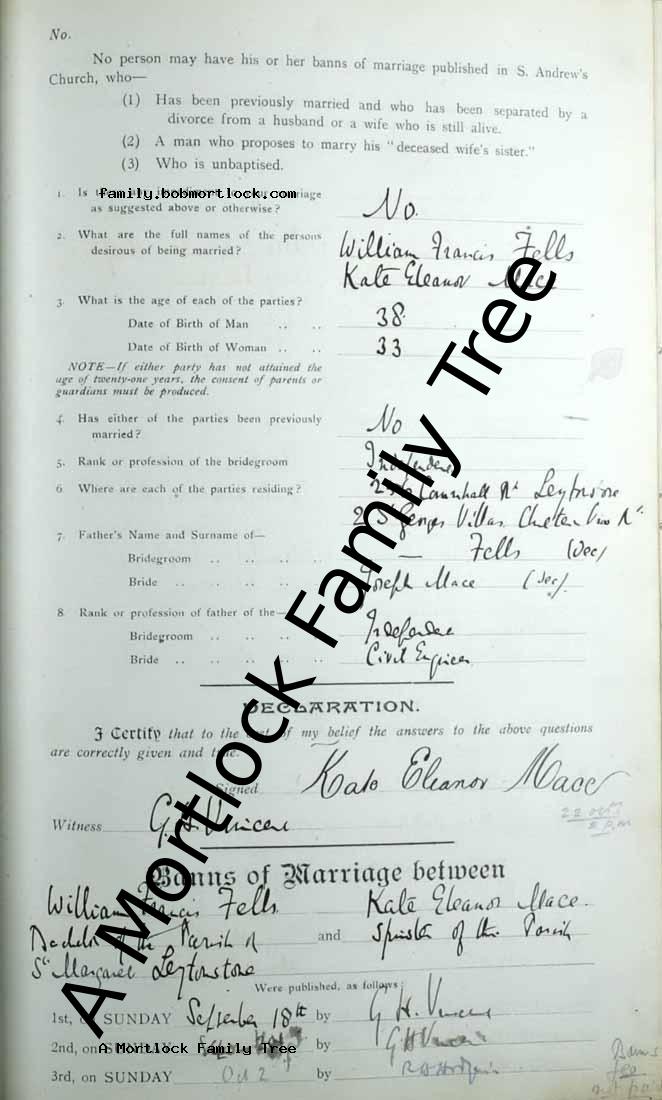 No.
No person may have his or her banns of marriage published in S. Andrew's
Church, who—
(1) Has been previously married and who has been separated by a
divorce from a husband or a wife who is still alive.
(2) A man who proposes to marry his "deceased wife's sister."
(3) Who is unbaptised.
Family.bobmortlock.com
1. Is
as suggested above or otherwise? No.
2. What are the full names of the persons
desirous of being married? William Francis Fells
Kate Eleanor Mace
3. What is the age of each of the parties?
Date of Birth of Man .. .. 38
Date of Birth of Woman .. .. 33
NOTE—If either party has not attained the
age of twenty-one years, the consent of parents or
guardians must be produced.
4. Has either of the parties been previously
married? No
5. Rank or profession of the bridegroom Independent
6. Where are each of the parties residing? Leytonstone
2 St Georges Villas
7. Father's Name and Surname of—
Bridegroom .. .. .. — Fells (Dec)
Bride .. .. .. Joseph Mace (Dec).
8. Rank or profession of father of the—
Bridegroom .. .. .. Independent
Bride .. .. .. .. Civil Engineer
DECLARATION.
I Certify that to the best of my belief the answers to the above questions
are correctly given and true.
Signed Kate Eleanor Mace
Witness G. H. Vincent
Banns of Marriage between
William Francis Fells and Kate Eleanor Mace.
Bachelor of the Parish of Spinster of the Parish
St Margaret Leytonstone
Were published, as follows:
1st, on SUNDAY September 18th by G H Vincent
2nd, on SUNDAY by G H Vincent
3rd, on SUNDAY Oct 2 by
Banns
fee
not paid
A Mortlock Family Tree
A Mortlock Family Tree